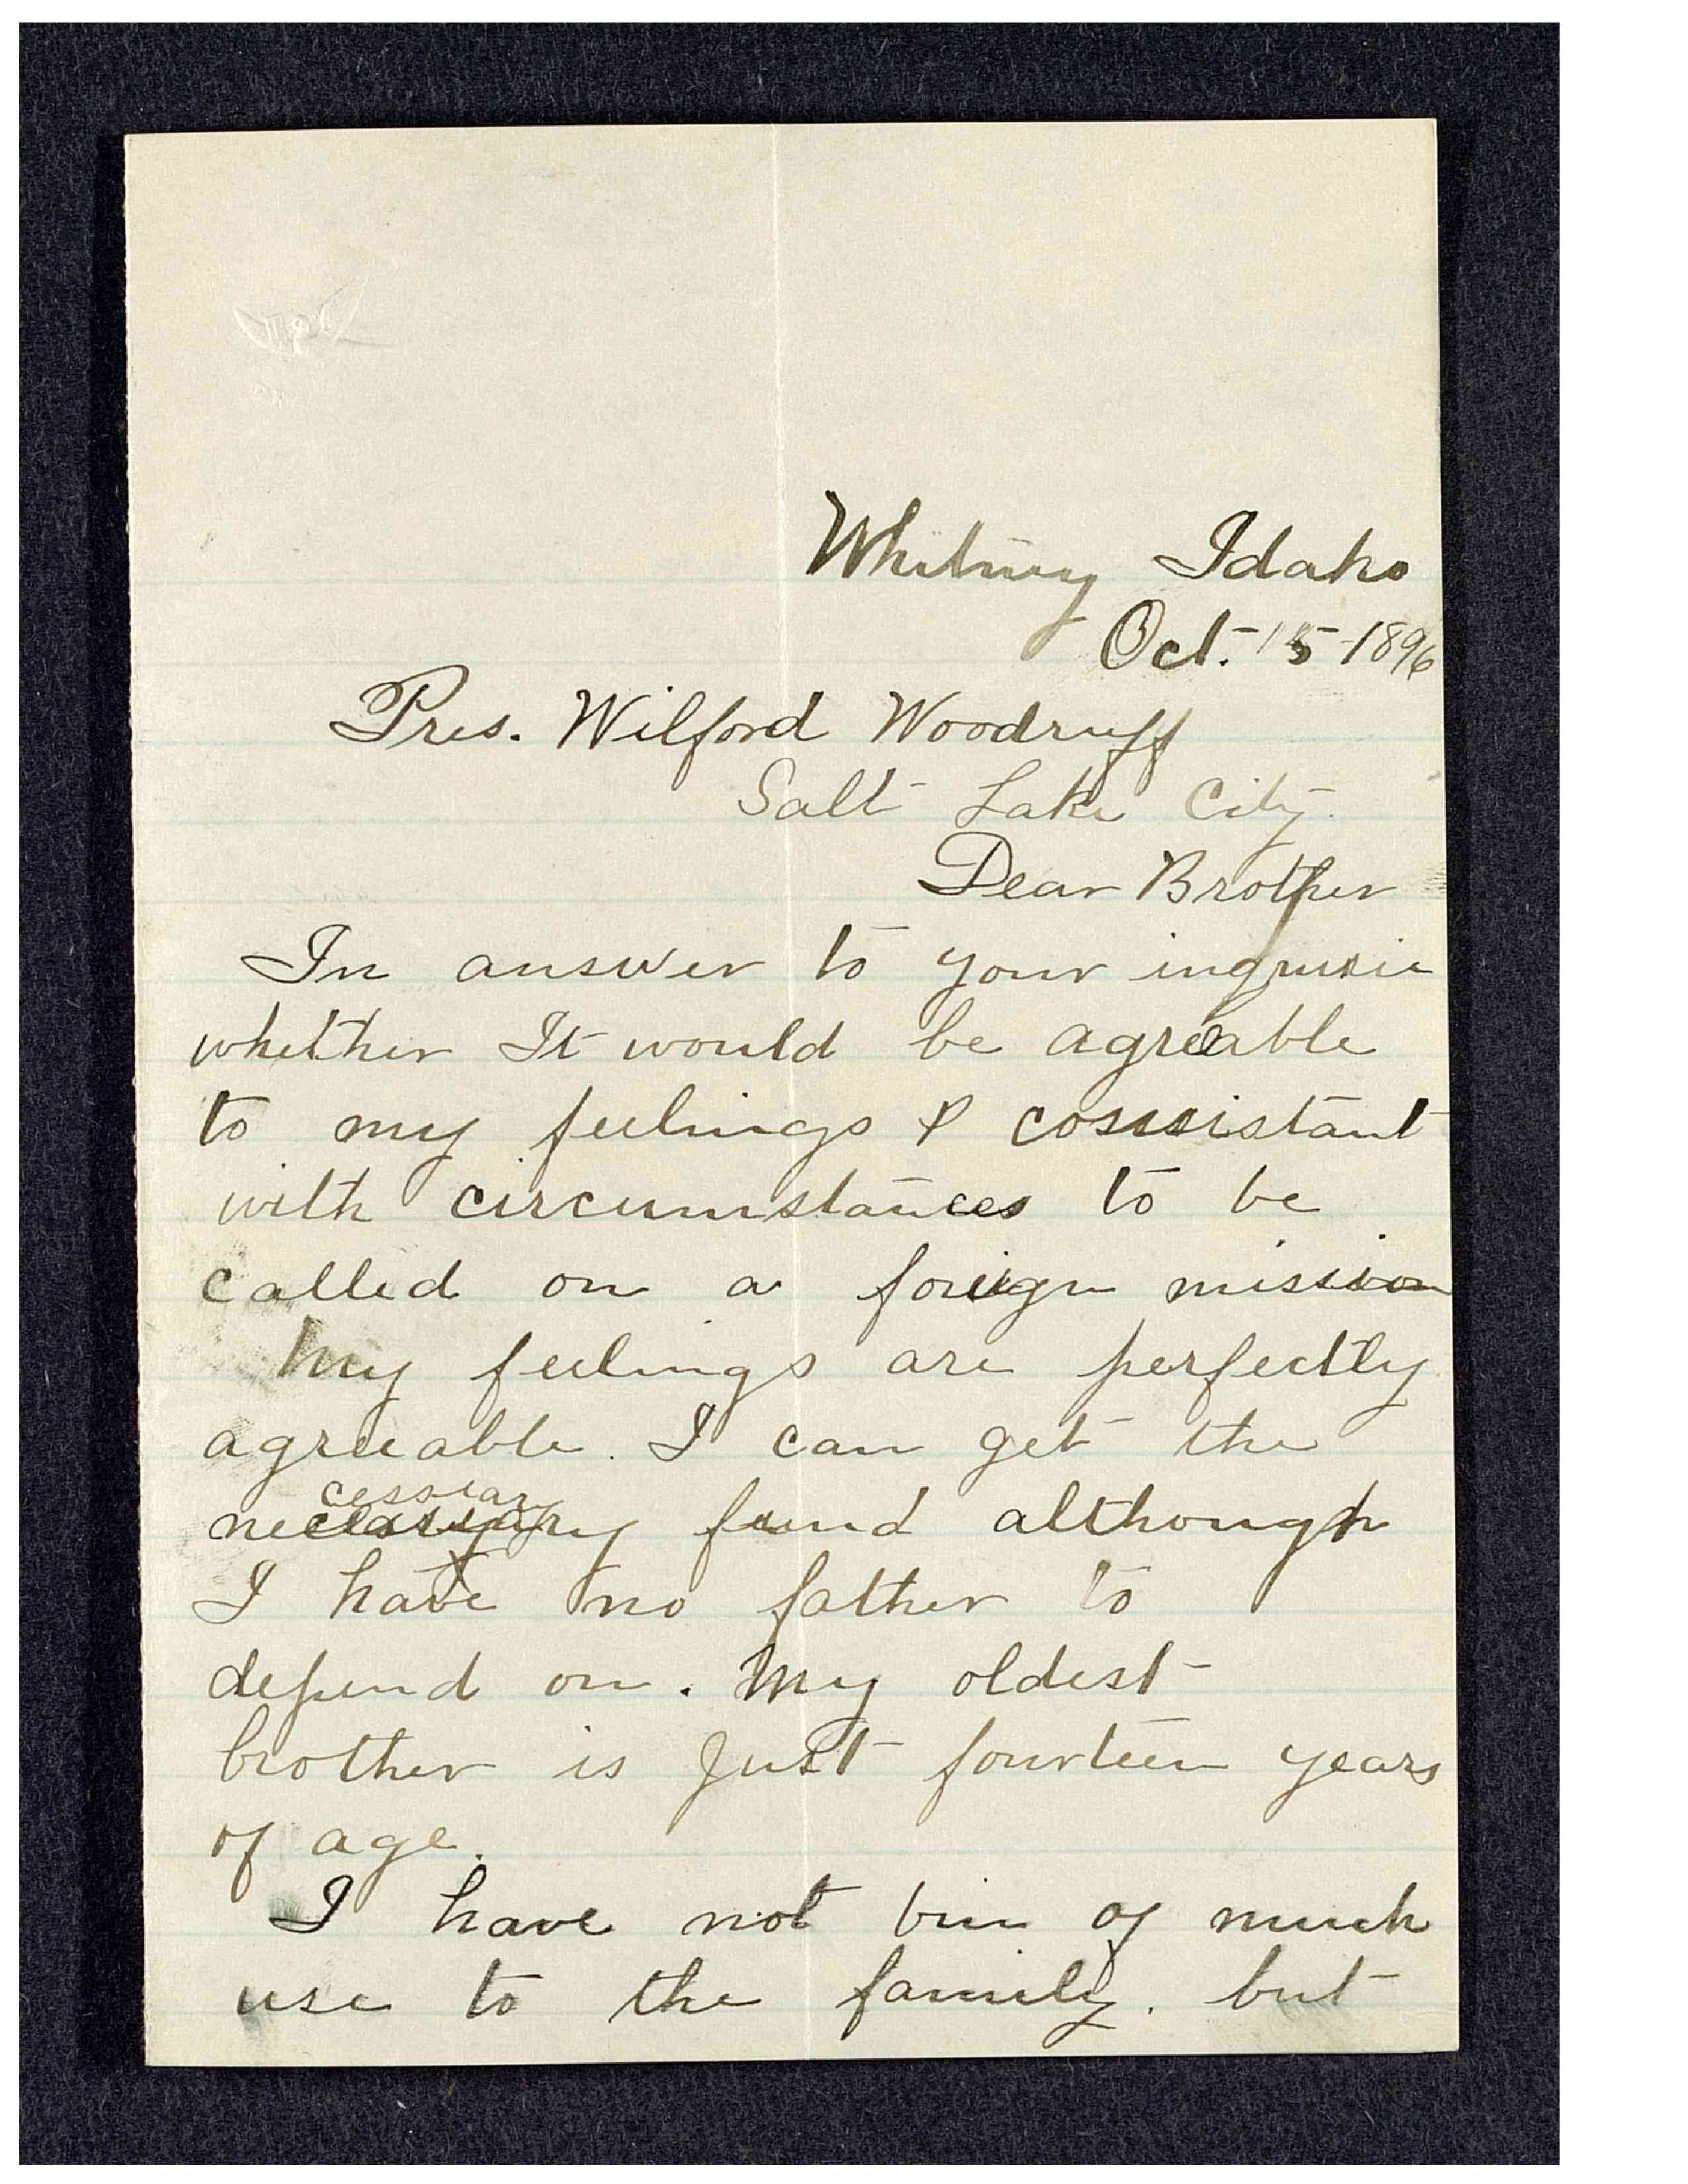 Whitney Idaho
Oct. 15 1896
Pres. Wilford Woodruff
Salt Lake City
Dear Brother
In answer to your
whether It would be agreeable
to my feelings & consistant
with circumstances to be
called on a foreign mission
My feelings are perfectly
agreeable. I can get the
cessiary
fund although
I have no father to
depend on. My oldest
brother is Just fourteen years
of age.
I have not bin of much
use to the family. but